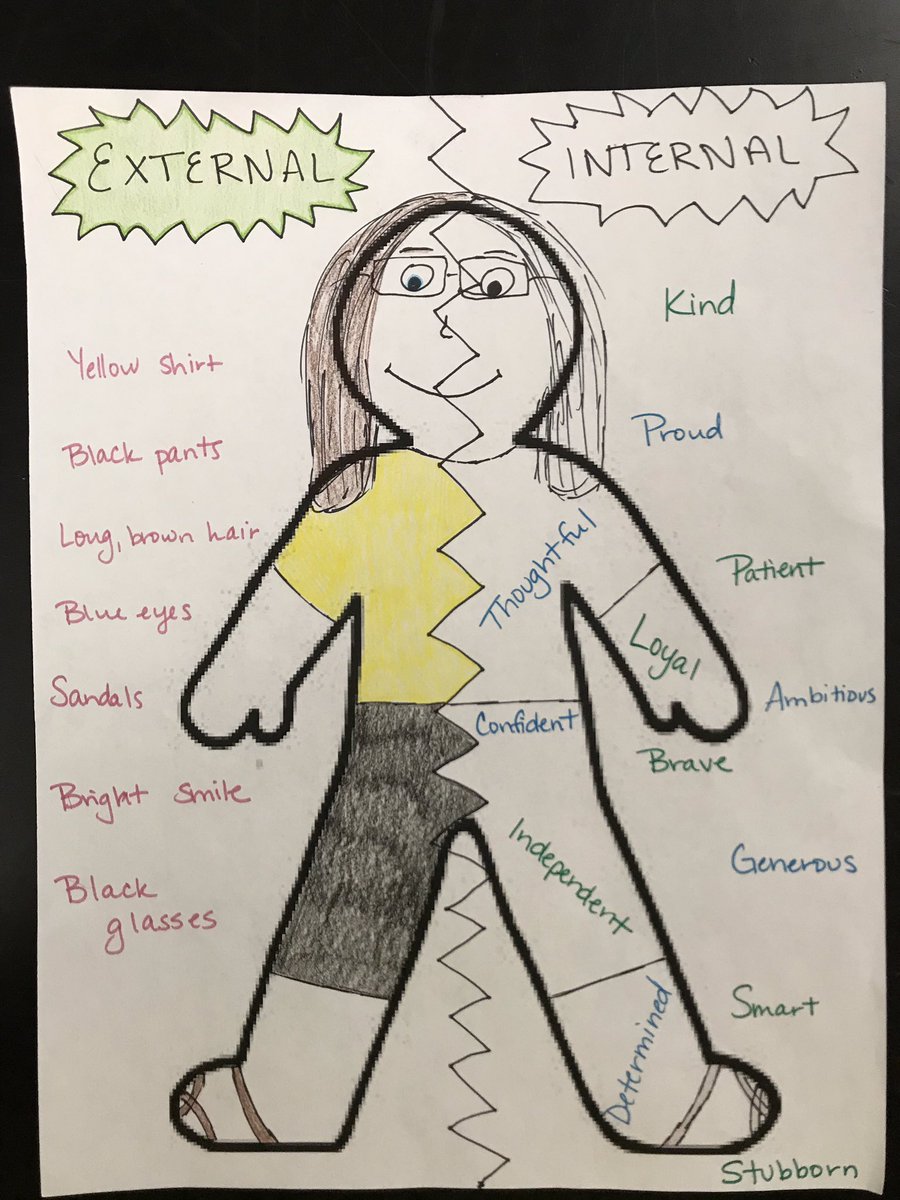 EXTERNAL
INTERNAL
Yellow shirt
Black pants
Long, brown hair
Blue eyes
Sandals
Bright smile
Black
glasses
Kind
Proud
Thoughtful
Patient
Loyal
Ambitious
Confident
Brave
Independent
Generous
Determined
Smart
Stubborn